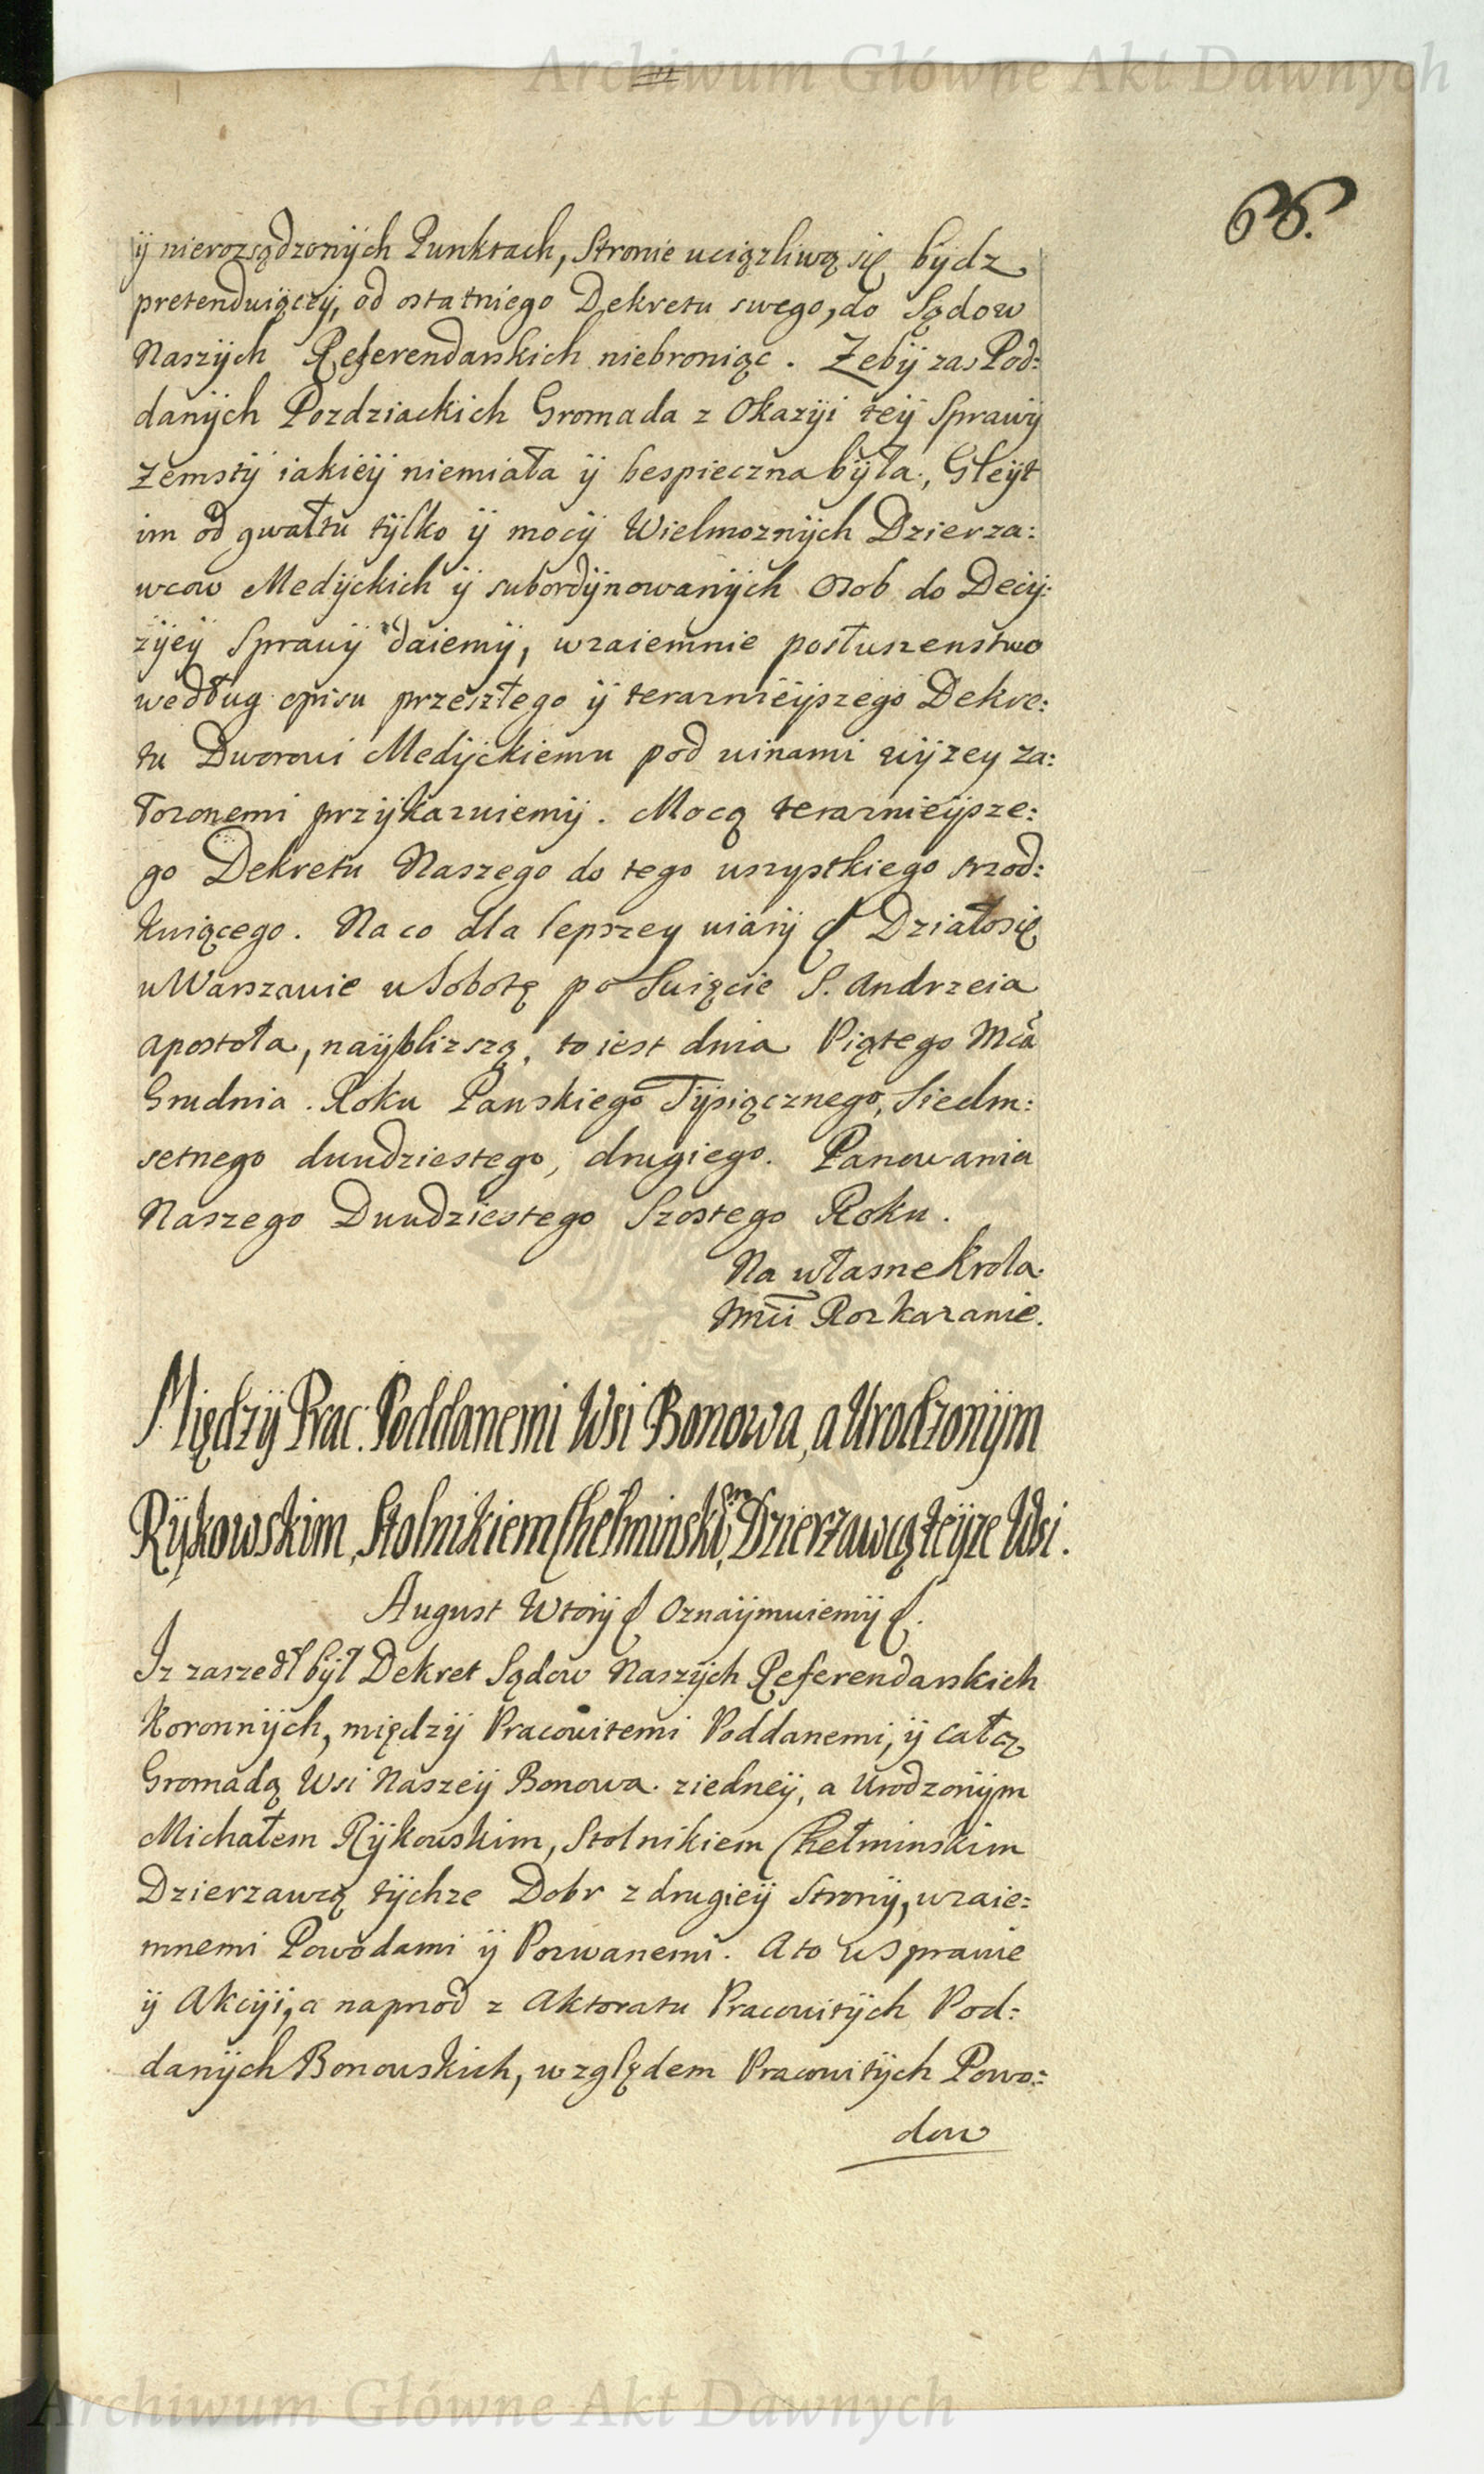 Archiwum Główne Akt Dawnych
66.
ÿ nierozsądzonÿch Punktach, Stronie uciązliwą się bÿdz
pretenduiącÿ, od ostatniego Dekretu swego, do Sądow
Naszÿch Referendarskich niebroniąc. Zebÿ zas Pod:
danÿch Pozdziackich Gromada z Okazÿi teÿ Sprawÿ
Zemstÿ iakieÿ niemiała ÿ bespieczna bÿła, Gleÿt
im od gwałtu tÿlko ÿ mocÿ Wielmoznÿch Dzierza:
wcow Medÿckich ÿ subordÿnowanÿch Osob do Decÿ:
zÿeÿ Sprawÿ daiemÿ, wzaiemnie posłuszenstwo
według opisu przeszłego ÿ teraznieÿszego Dekre:
tu Dworowi Medÿckiemu pod winami wÿzey za:
łozonemi przÿkazuiemÿ. Mocą teraznieÿsze:
go Dekretu Naszego do tego wszystkiego srzod:
kuiącego. Na co dla lepszey wiarÿ & Działosię
w Warszawie w Sobotę po Swięcie S. Andrzeia
Apostoła, naÿblizszą, to iest dnia Piątego Mca
Grudnia. Roku Panskiego Tÿsiącznego, Siedm:
setnego dwudziestego, drugiego. Panowania
Naszego Dwudziestego Szostego Roku.
Na własne Krola
Mci Rozkazanie.
Międzÿ Prac. Poddanemi Wsi Bonowa, a Urodzonÿm
Rÿkowskim, Stolnikiem Chełminskim, Dzierzawcą teÿze Wsi.
August Wtorÿ & Oznaÿmuiemÿ &.
Iz zaszedł bÿł Dekret Sądow Naszÿch Referendarskich
Koronnÿch, międzÿ Pracowitemi Poddanemi, ÿ całą
Gromadą Wsi Naszeÿ Bonowa ziedneÿ, a Urodzonÿm
Michałem Rÿkowskim, Stolnikiem Chełminskim
Dzierzawcą tÿchze Dobr z drugieÿ Stronÿ, wzaie:
mnemi Powodami ÿ Pozwanemi. A to w Sprawie
ÿ Akcÿi, a naprzod z Aktoratu Pracowitÿch Pod:
danÿch Bonowskich, względem Pracowitÿch Powo:
dow
Archiwum Główne Akt Dawnych